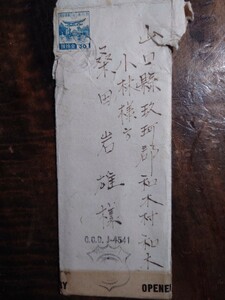 山口縣玖珂郡和木村和木
小林様方
桑田岩雄様
C.C.D. J-4541
OPENE